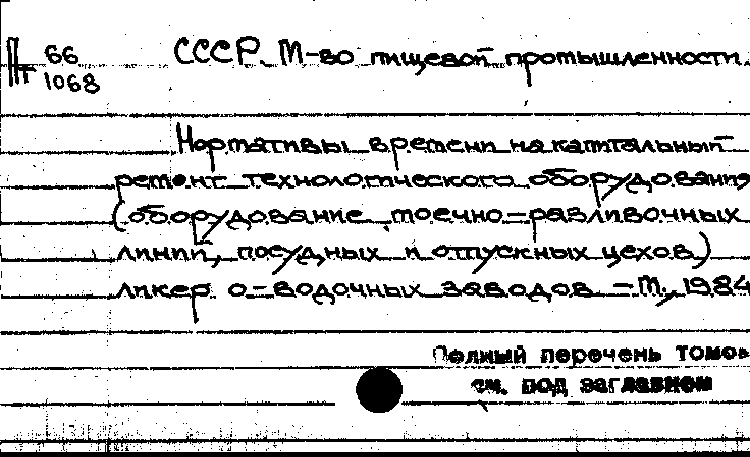 Пт 66
1068
СССР. М-во пищевой промышленности.
Нормативы времени на капитальный
ремонт технологического оборудования
(оборудование моечно-разливочных
линий, посудных и отпускных цехов)
ликеро-водочных заводов - М., 1984
Полный перечень томов
см. под заглавием